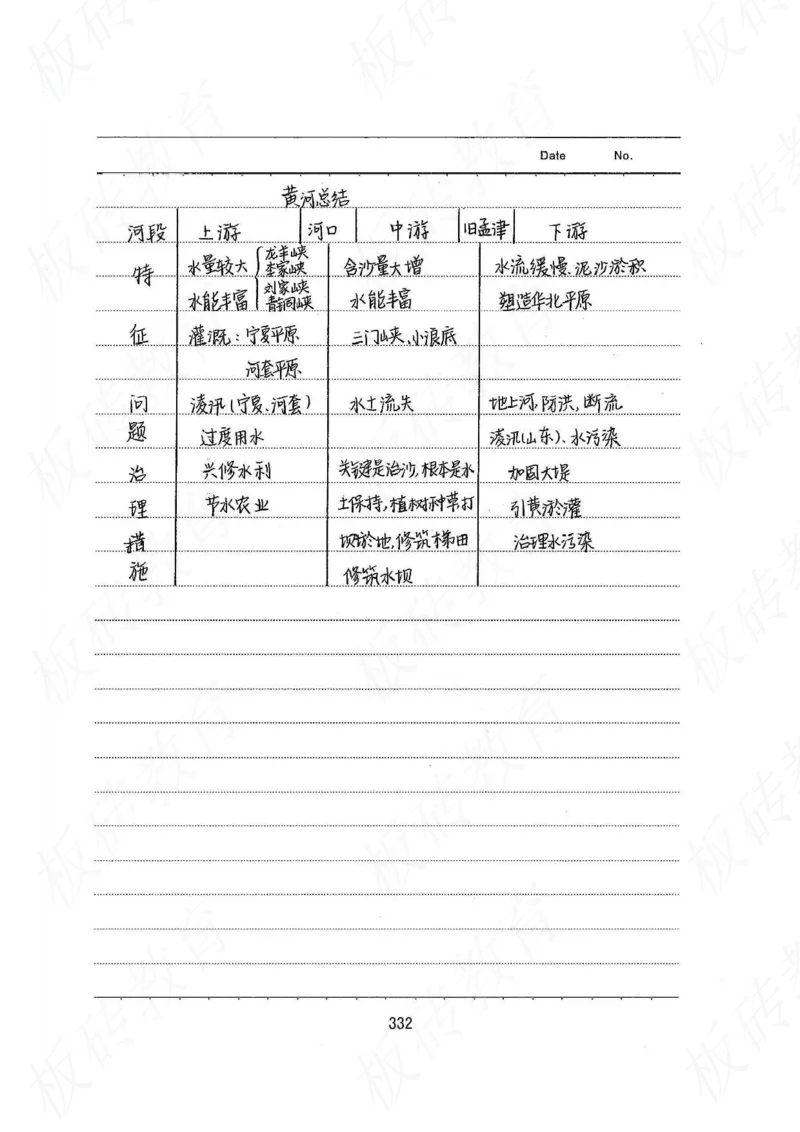 Date No.
黄河总结
河段 上游 河口 中游 旧孟津 下游
特 水量较大 龙羊峡 李家峡 含沙量大增 水流缓慢、泥沙淤积
水能丰富 刘家峡 青铜峡 水能丰富 塑造华北平原
征 灌溉：宁夏平原 三门峡、小浪底
河套平原
问 凌汛(宁夏、河套) 水土流失 地上河,防洪,断流
题 过度用水 凌汛(山东)、水污染
治 兴修水利 关键是治沙,根本是水 加固大堤
理 节水农业 土保持,植树种草打 引黄淤灌
措 坝淤地,修筑梯田 治理水污染
施 修筑水坝
332
板砖教育
板砖教育
板砖教育
板砖教育
板砖教育
板砖教育